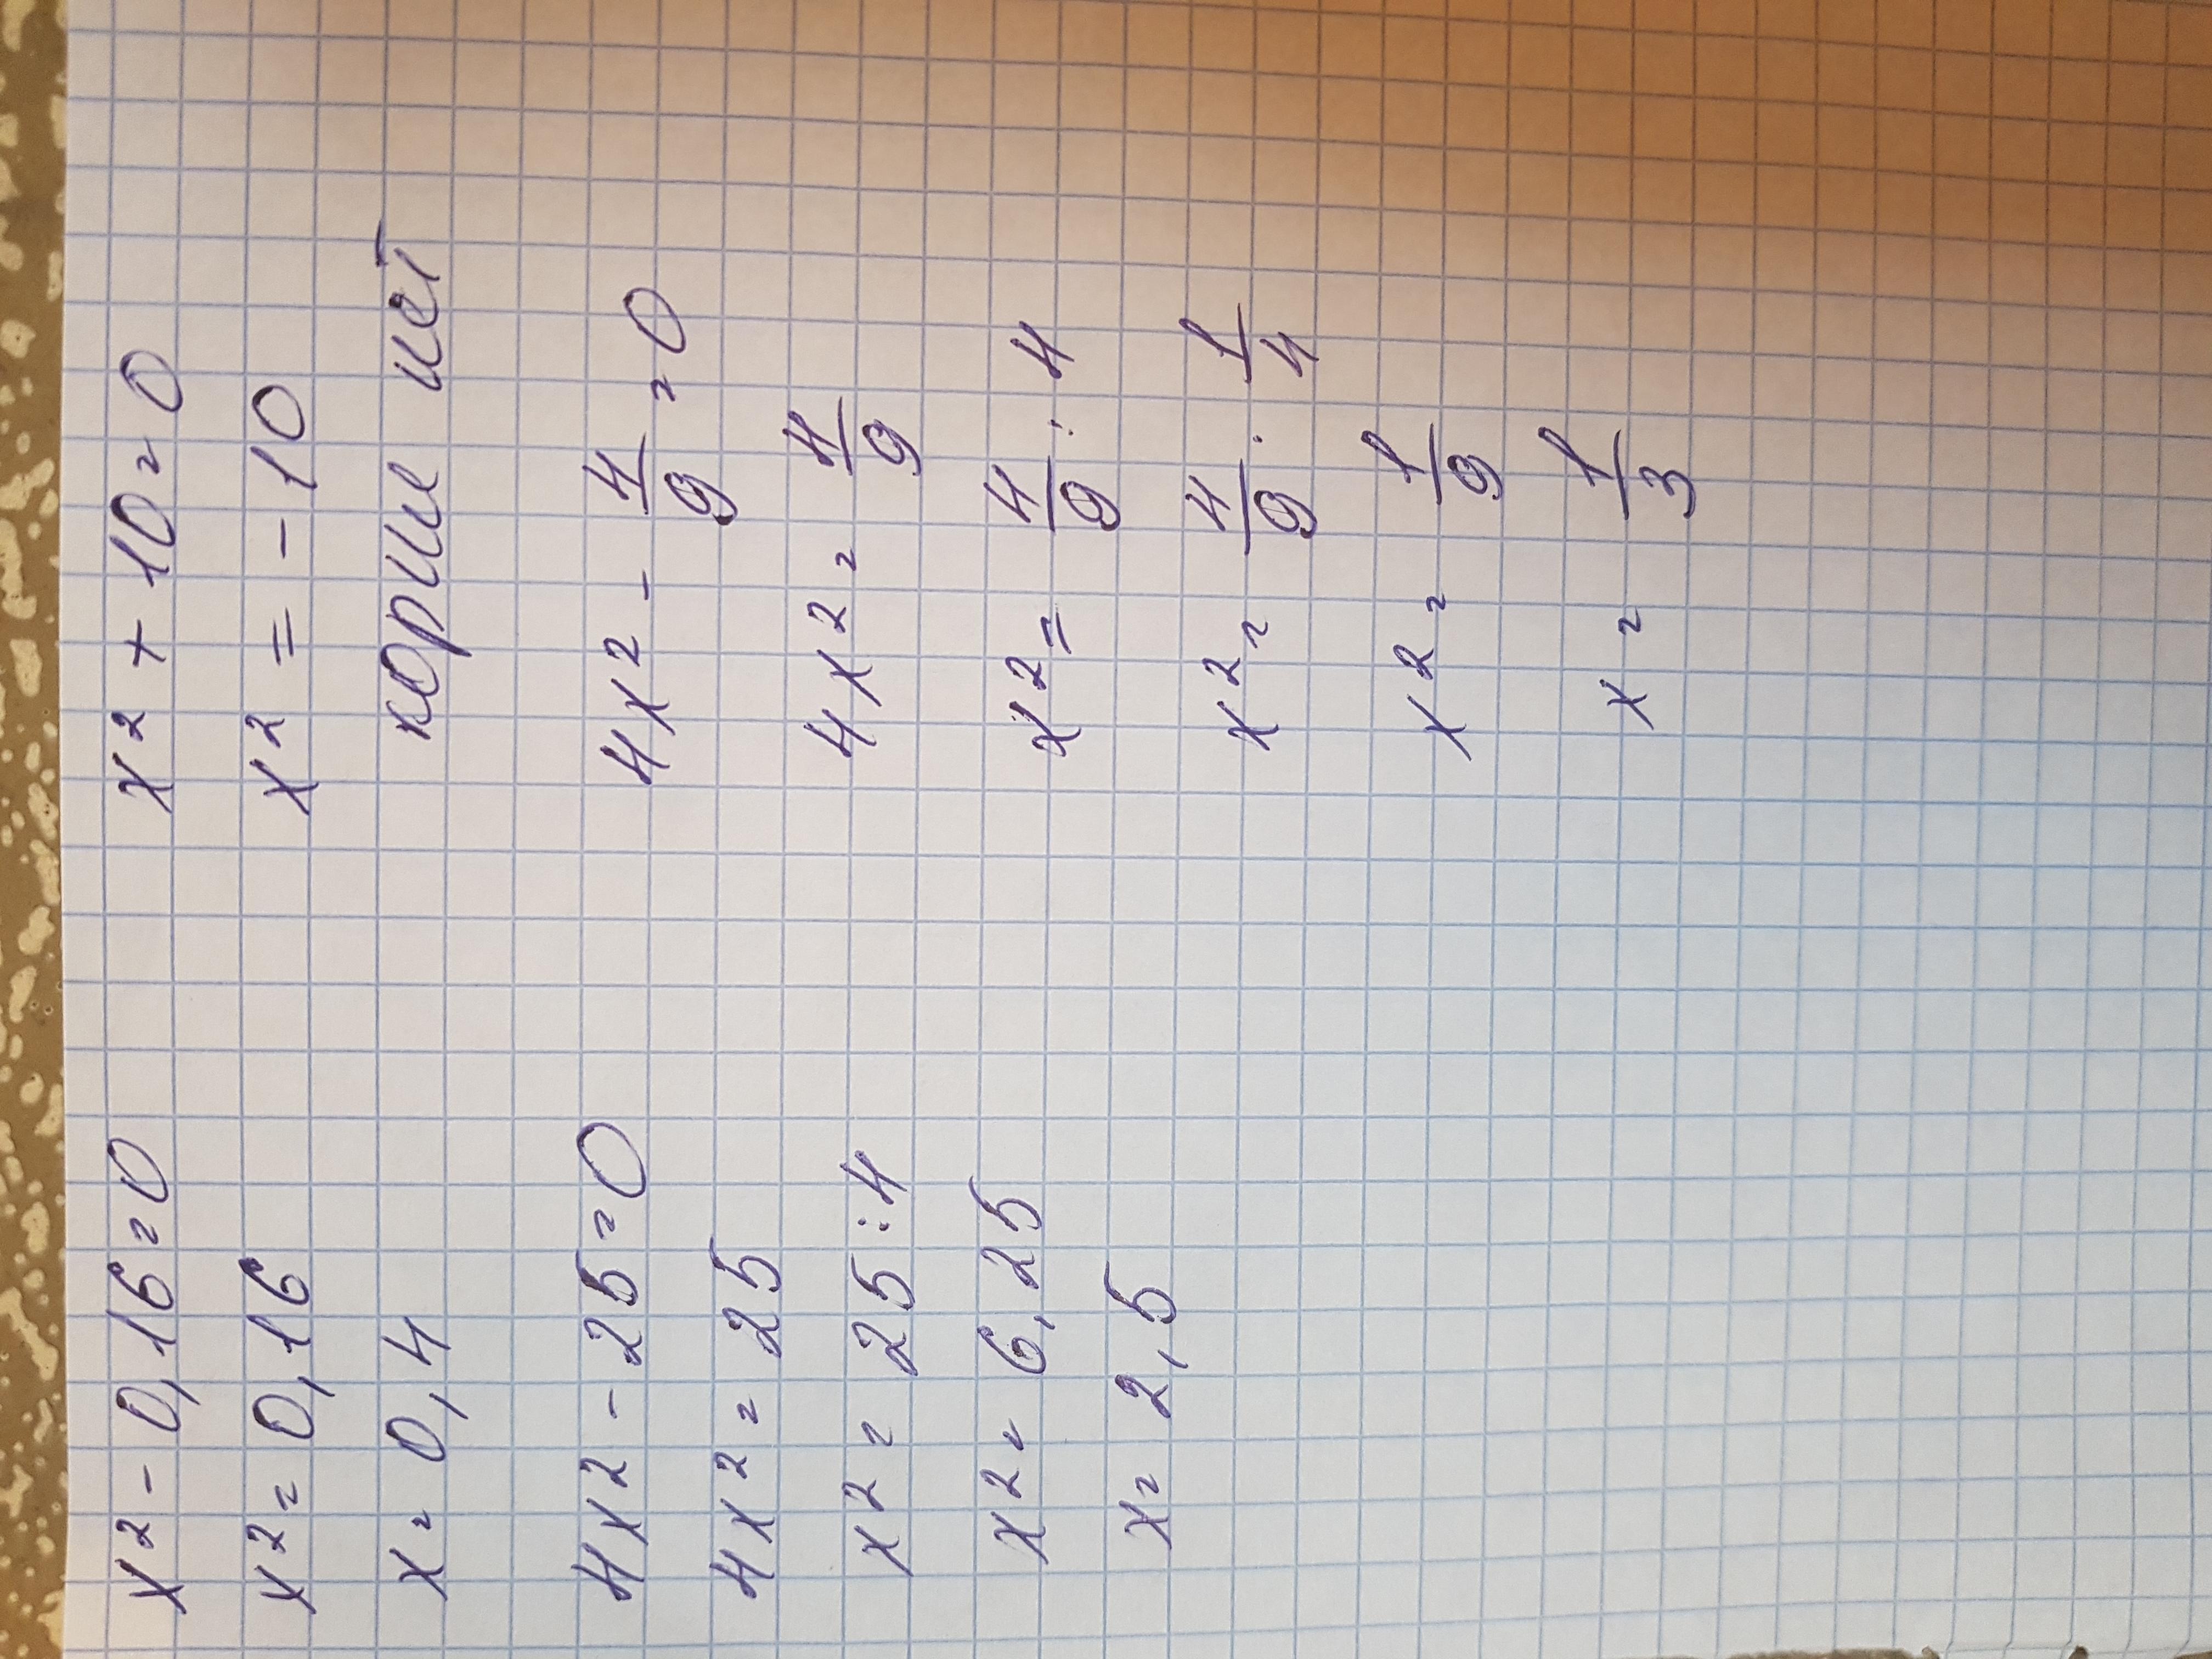 x² - 0,16 = 0
x² = 0,16
x = 0,4
4x² - 25 = 0
4x² = 25
x² = 25 : 4
x² = 6,25
x = 2,5
x² + 10 = 0
x² = -10
корне нет
4x² - 4/9 = 0
4x² = 4/9
x² = 4/9 : 4
x² = 4/9 · 1/4
x² = 1/9
x = 1/3